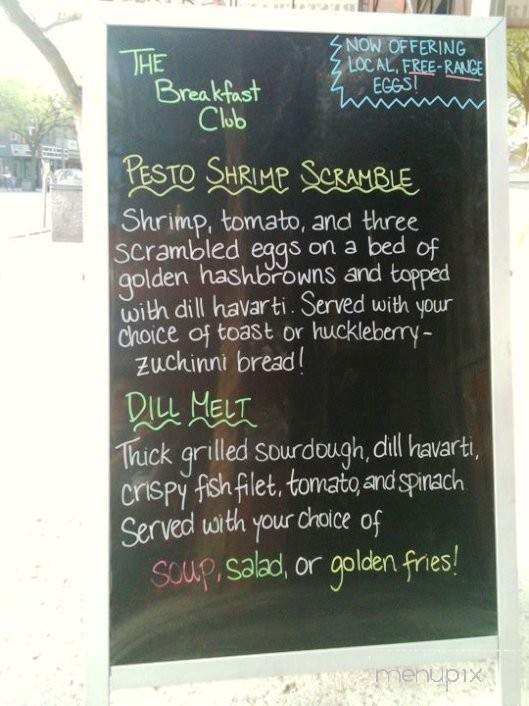 THE
Breakfast
Club
NOW OFFERING
LOCAL, FREE-RANGE
EGGS!
PESTO SHRIMP SCRAMBLE
Shrimp, tomato, and three
scrambled eggs on a bed of
golden hashbrowns and topped
with dill havarti. Served with your
choice of toast or huckleberry-
zuchinni bread!
DILL MELT
Thick grilled sourdough, dill havarti,
crispy fish filet, tomato, and spinach
Served with your choice of
soup, salad, or golden fries!
menupix